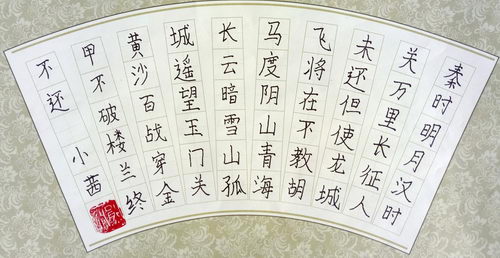 秦时明月汉时
关万里长征人
未还但使龙城
飞将在不教胡
马度阴山青海
长云暗雪山孤
城遥望玉门关
黄沙百战穿金
甲不破楼兰终
不还 小茜